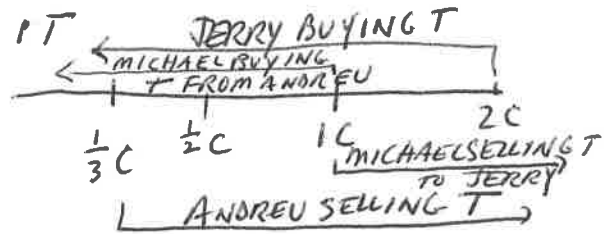 PT
JERRY BUYING T
MICHAEL BUYING
T FROM ANDREU
1/3 C
1/2 C
1C
2C
MICHAEL SELLING T
TO JERRY
ANDREU SELLING T